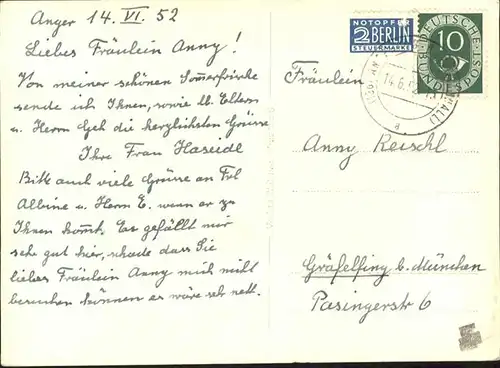 Anger 14. VI. 52
Liebes Fräulein Anny!
Von meiner schönen Sommerfrische
sende ich Ihnen, sowie lb. Eltern
u. Herrn Geh die herzlichsten Grüsse
Ihre Frau Haseidl
Bitte auch viele Grüsse an Frl
Albine u. Herrn E. wenn er zu
Ihnen kommt. Es gefällt mir
sehr gut hier, schade dass Sie
liebes Fräulein Anny mich nicht
besuchen können es wäre sehr nett.
NOTOPFER
2 BERLIN
STEUERMARKE
DEUTSCHE BUNDESPOST
10
14.6.52
a
Fräulein
Anny Reischl
Gräfelfing b. München
Pasingerstr 6